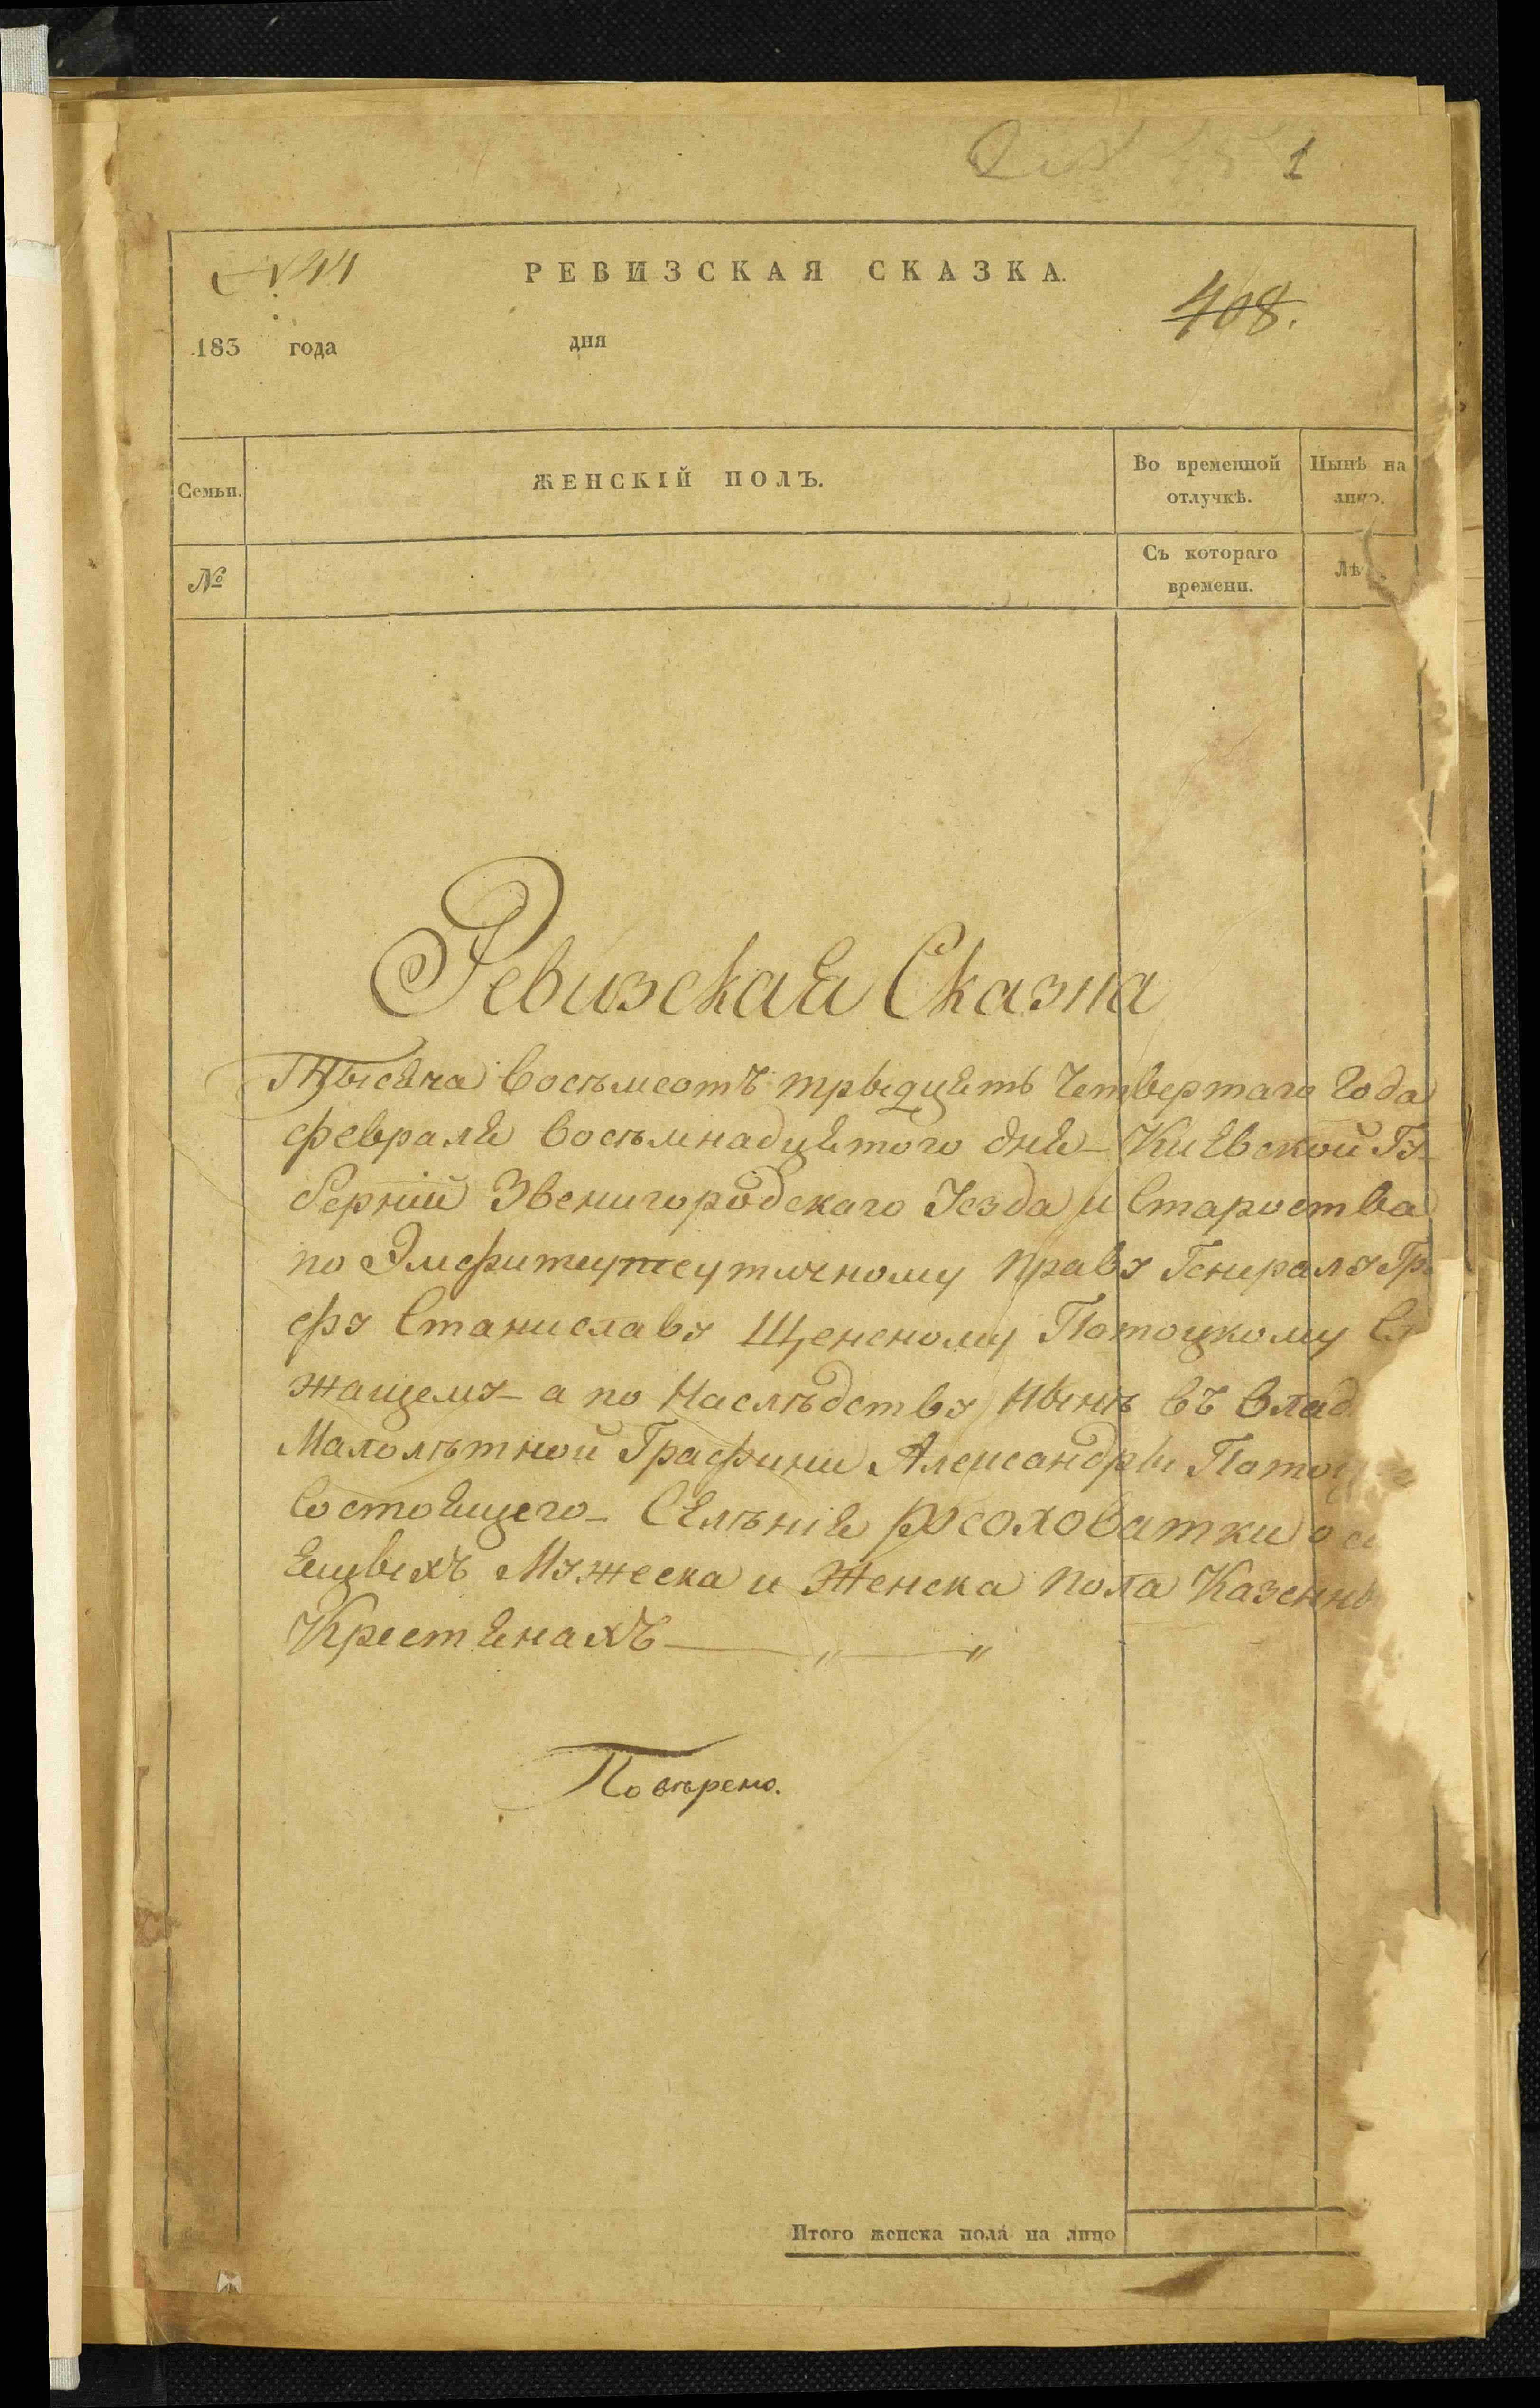 1
№ 44
РЕВИЗСКАЯ СКАЗКА.
408.
183 года дня
Семьи.
ЖЕНСКІЙ ПОЛЪ.
Во временной отлучкѣ.
Нынѣ на лицо.
№
Съ котораго времени.
Лѣ
Ревизская Сказка
Тысяча восемсотъ трыдцять Четвертаго Года
февраля восемнадцятого дня - Киевской Гу-
берніи Звенигородскаго Уезда и Староства
по Эмфитеутеутичному праву Генералу Гра
фу Станиславу Щенсному Потоцкому
жащему - а по Наслѣдству Нынѣ въ влад
Малолѣтной Графини Александры Потоц
Состоящего - Селѣнія Росоховатки о
ящыхъ Мужеска и Женска пола Казенны
Крестянахъ — " — "
Повѣрено.
Итого женска пола на лицо